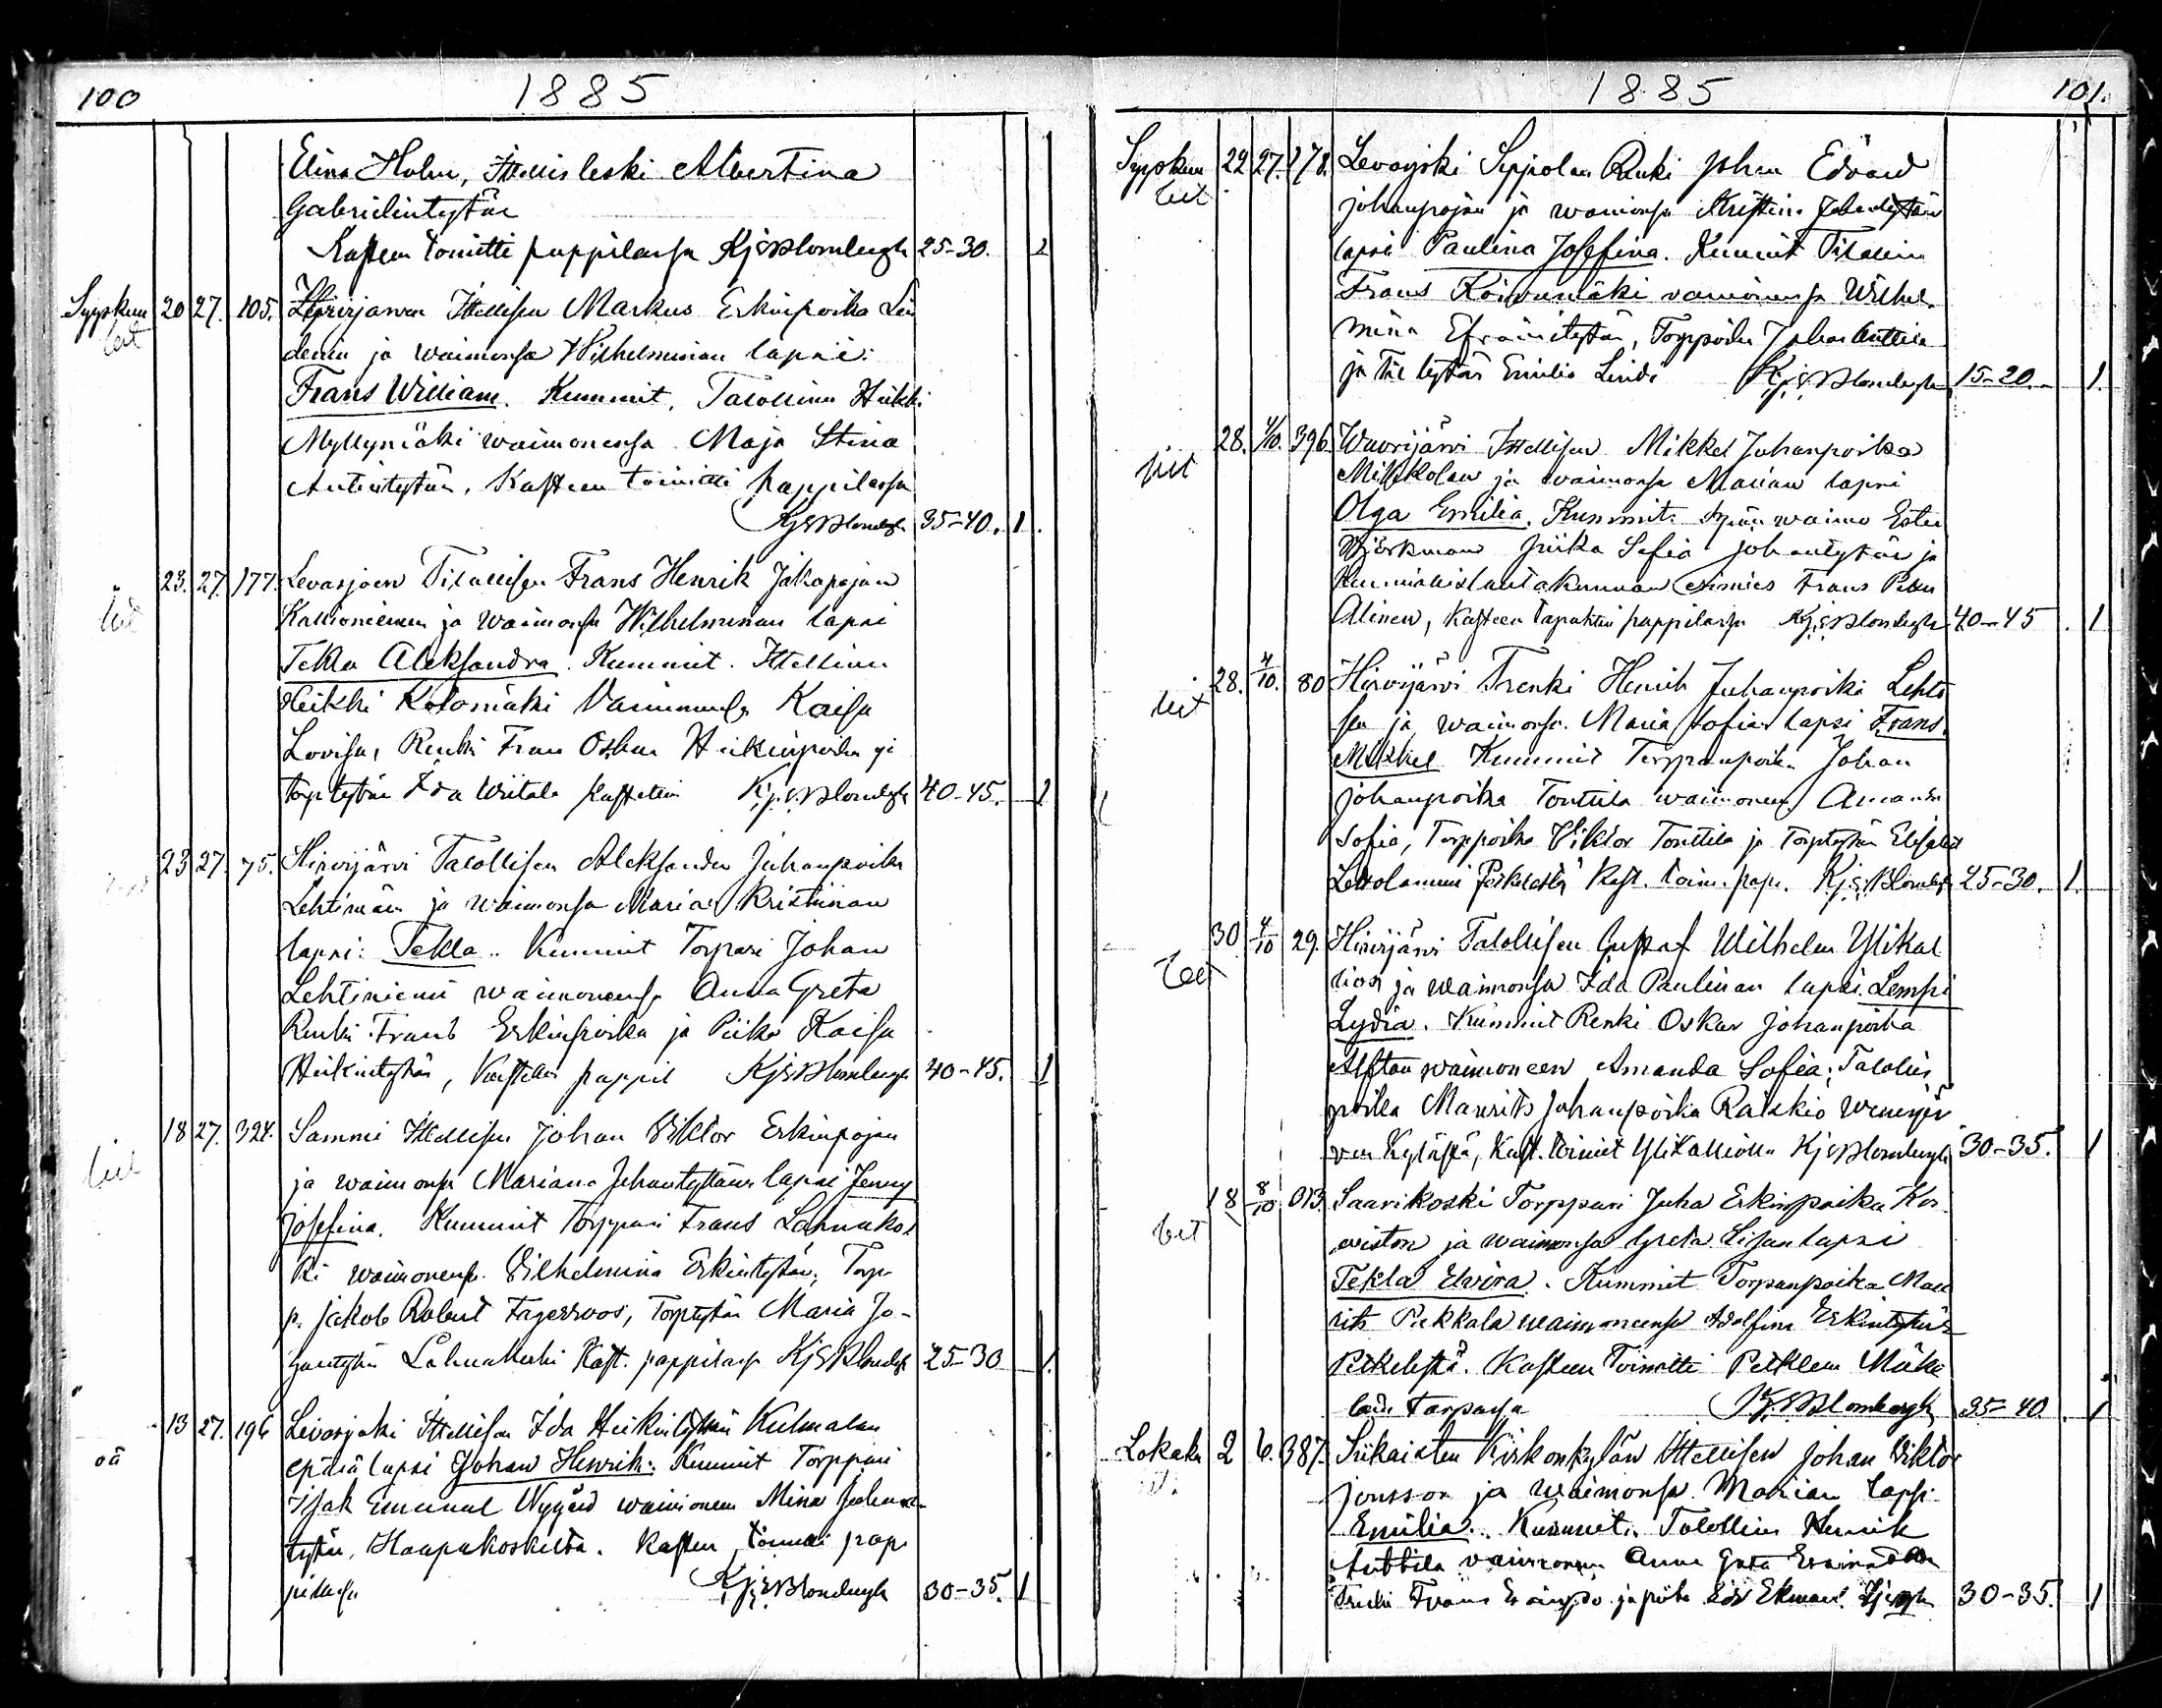 100
1885
Elina Holm, Ittellisleski Albertina
Gabrielintytär
Kasteen toimitti pappilassa KjEBlombergh 25-30. 2
Syyskuu 20 27. 105. Ittellisen Markus Erkinpoika Lin
denin ja waimonsa Wilhelminan lapsi:
Frans William. Kummit, Talollinen Heikki
Myllymäki waimonensa Maja Stina
Antintytär, Kasteen toimitti pappilassa
KjEBlombergh 35-40. 1.
23. 27. 177. Levasjoen Tilallisen Frans Henrik Jakapojan
Kallioniemen ja waimonsa Wilhelminan lapsi
Tekla Aleksandra. Kummit. Ittellinen
Heikki Kolomäki Vaimonensa Kaisa
Lovisa, Renki Frans Oskar Heikinpoika ja
torp tytär Ida Wiitala Kastettiin KjEBlombergh 40-45. 1
23 27. 75. Hirvijärvi Talollisen Aleksander Juhanpoika
Lehtimäen ja waimonsa Maria Kristiinan
lapsi: Tekla. Kummit Torpari Johan
Lehtiniemi waimonensa Anna Greta
Renki Frans Erkinpoika ja Piika Kaisa
Heikintytär, Kastettiin pappil KjEBlombergh 40-45. 1
18 27. 324. Sammi Ittellisen Johan Viktor Erkinpojan
ja waimonsa Mariana Juhantyttären lapsi Jenny
Josefina. Kummit Torppari Frans Lahnakos
ki waimonensa Vilhelmina Erkintytär, Torp
p. Jakob Robert Fagerroos, Torptytär Maria Jo-
hantytär Lahnakoski Kast. pappilassa KjEBlombergh 25-30 1.
13 27. 196 Levasjoki Ittellisen Ida Heikintyttären Kulmalan
oä epäsiä lapsi Johan Henrik: Kummit Torppari
Isak Emanuel Nygård waimoneen Mina Juhan
tytär, Haapakoskelta. Kasteen toimitti pap
pilassa KjEBlombergh 30-35. 1
1885
101.
Syyskuu 22 27. 178. Levasjoki Seppolan Renki Johan Edvard
Johanpojan ja waimonsa Kristiina Johantyttären
lapsi Paulina Josefina. Kummit Tilallinen
Frans Koivumäki vaimonensa Wilhel-
mina Efraimintytär, Torppoika Johan Anttila
ja Til tytär Emilia Lindi KjEBlombergh 15-20.- 1.
28. 4/10. 396. Wuorijärvi Ittellisen Mikkel Juhanpoika
Mikkolan ja waimonsa Marian lapsi
Olga Emilia. Kummit. waimo Ester
Björkman Piika Sofia Johantytär ja
Kunnallislautakunnan esimies Frans
Alinen, Kasteen tapahtui pappilassa KjEBlombergh 40-45 1
28. 4/10. 80 Hirvijärvi Trenki Henrik Juhanpoika Lehto
sen ja waimonsa Maria Sofian lapsi Frans
Mikkel Kummit Torppanpoika Johan
Johanpoika Tonttila waimoneen Amanda
Sofia, Torppoika Viktor Tonttila ja Torptytär Elisabet
Kast. toim. papp. KjEBlombergh 25-30. 1.
30 4/10 29. Hirvijärvi Talollisen Gustaf Wilhelm Ylikal
lion ja waimonsa Ida Paulinan lapsi Lempi
Lydia. Kummit Renki Oskar Johanpoika
waimoneen Amanda Sofia, Talollis
poika Maurits Juhanpoika Raikkio
ven Kylästä, Kast. toimit Ylikalliolla KjEBlombergh 30-35. 1
18 8/10 313. Saarikoski Torppari Juha Erkinpoika Koi
viston ja waimonsa Greta Liisan lapsi
Tekla Elvira. Kummit Torpanpoika Mau
rits Pukkala waimoneensa Adolfina Erkintytär
Petkelestä. Kasteen Toimitti Petkeleen Mäke
län Torpassa KjEBlombergh 35-40. 1
Lokaku 2 6. 387. Siikaisten Kirkonkylän Ittellisen Johan Viktor
Jonsson ja waimonsa Marian lapsi
Emilia. Kummit. Talollinen Henrik
Anttila vaimoneen Anna Greta
Trenki Frans ja piika Ekman. 30-35. 1